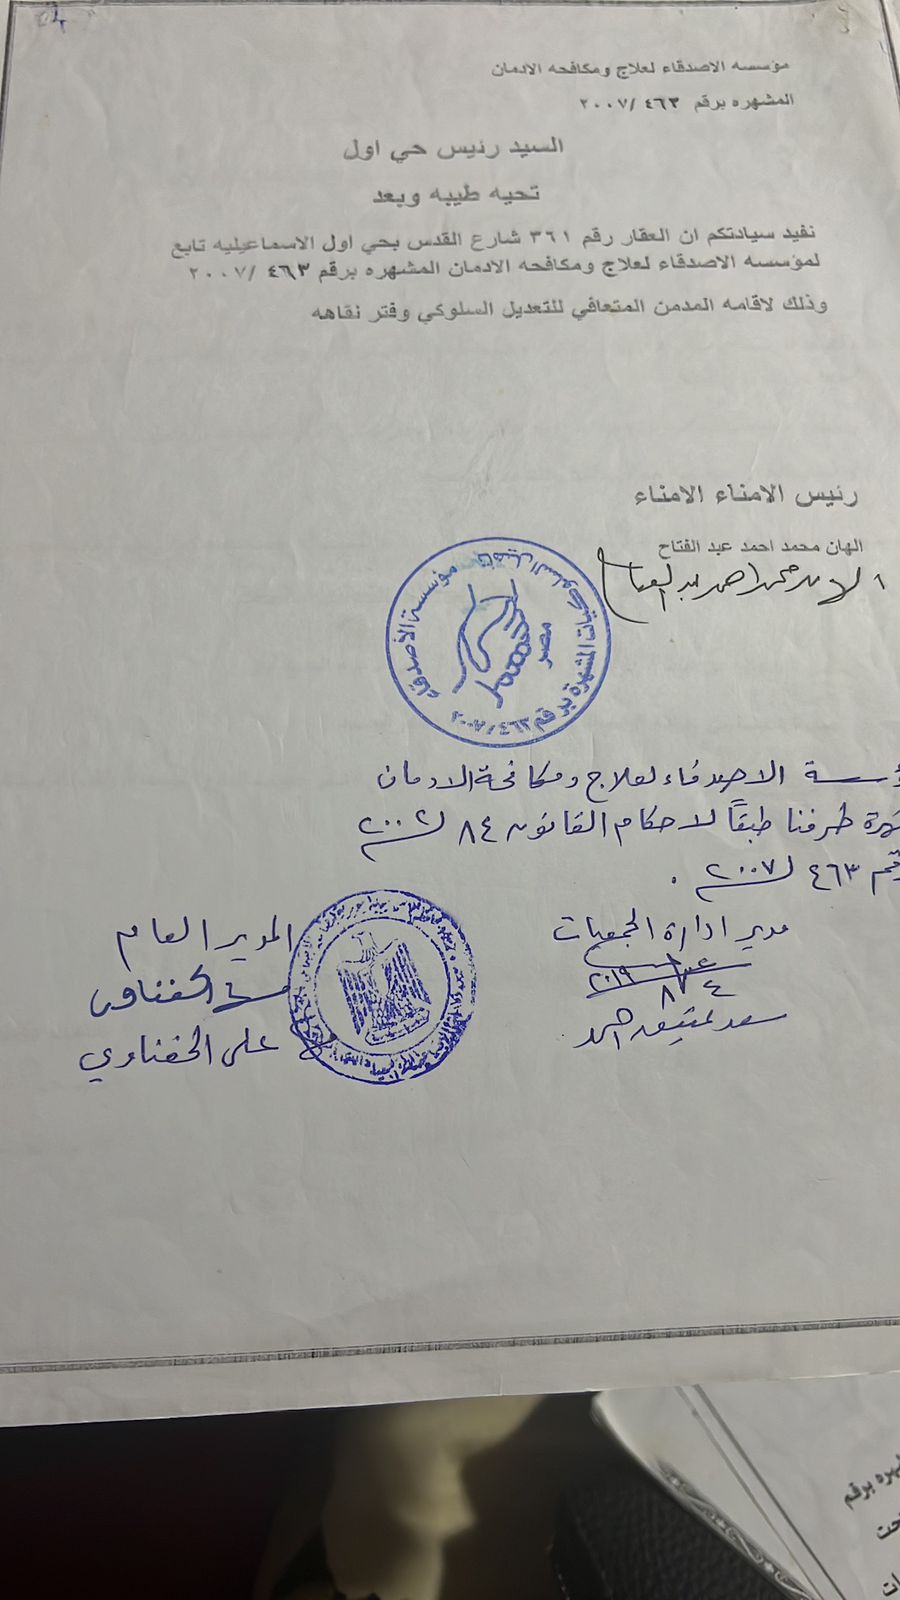 مؤسسه الاصدقاء لعلاج ومكافحه الادمان
المشهره برقم ٤٦٣ /٢٠٠٧
السيد رئيس حي اول
تحيه طيبه وبعد
نفيد سيادتكم ان العقار رقم ٣٦١ شارع القدس بحي اول الاسماعيليه تابع
لمؤسسه الاصدقاء لعلاج ومكافحه الادمان المشهره برقم ٤٦٣ /٢٠٠٧
وذلك لاقامه المدمن المتعافي للتعديل السلوكي وفتر نقاهه
رئيس الامناء الامناء
الهان محمد احمد عبد الفتاح
مؤسسة الأصدقاء
المشهرة برقم ٤٦٣ / ٢٠٠٧
مصر
ؤسسة الاصدقاء لعلاج ومكافحة الادمان
هرة طرفنا طبقاً لاحكام القانون ٨٤ لسنة ٢٠٠٢
قم ٤٦٣ لسنة ٢٠٠٧ .
مدير ادارة الجمعيات
المدير العام
٤/٨/٢٠١٩
على الحفناوي
هره برقم